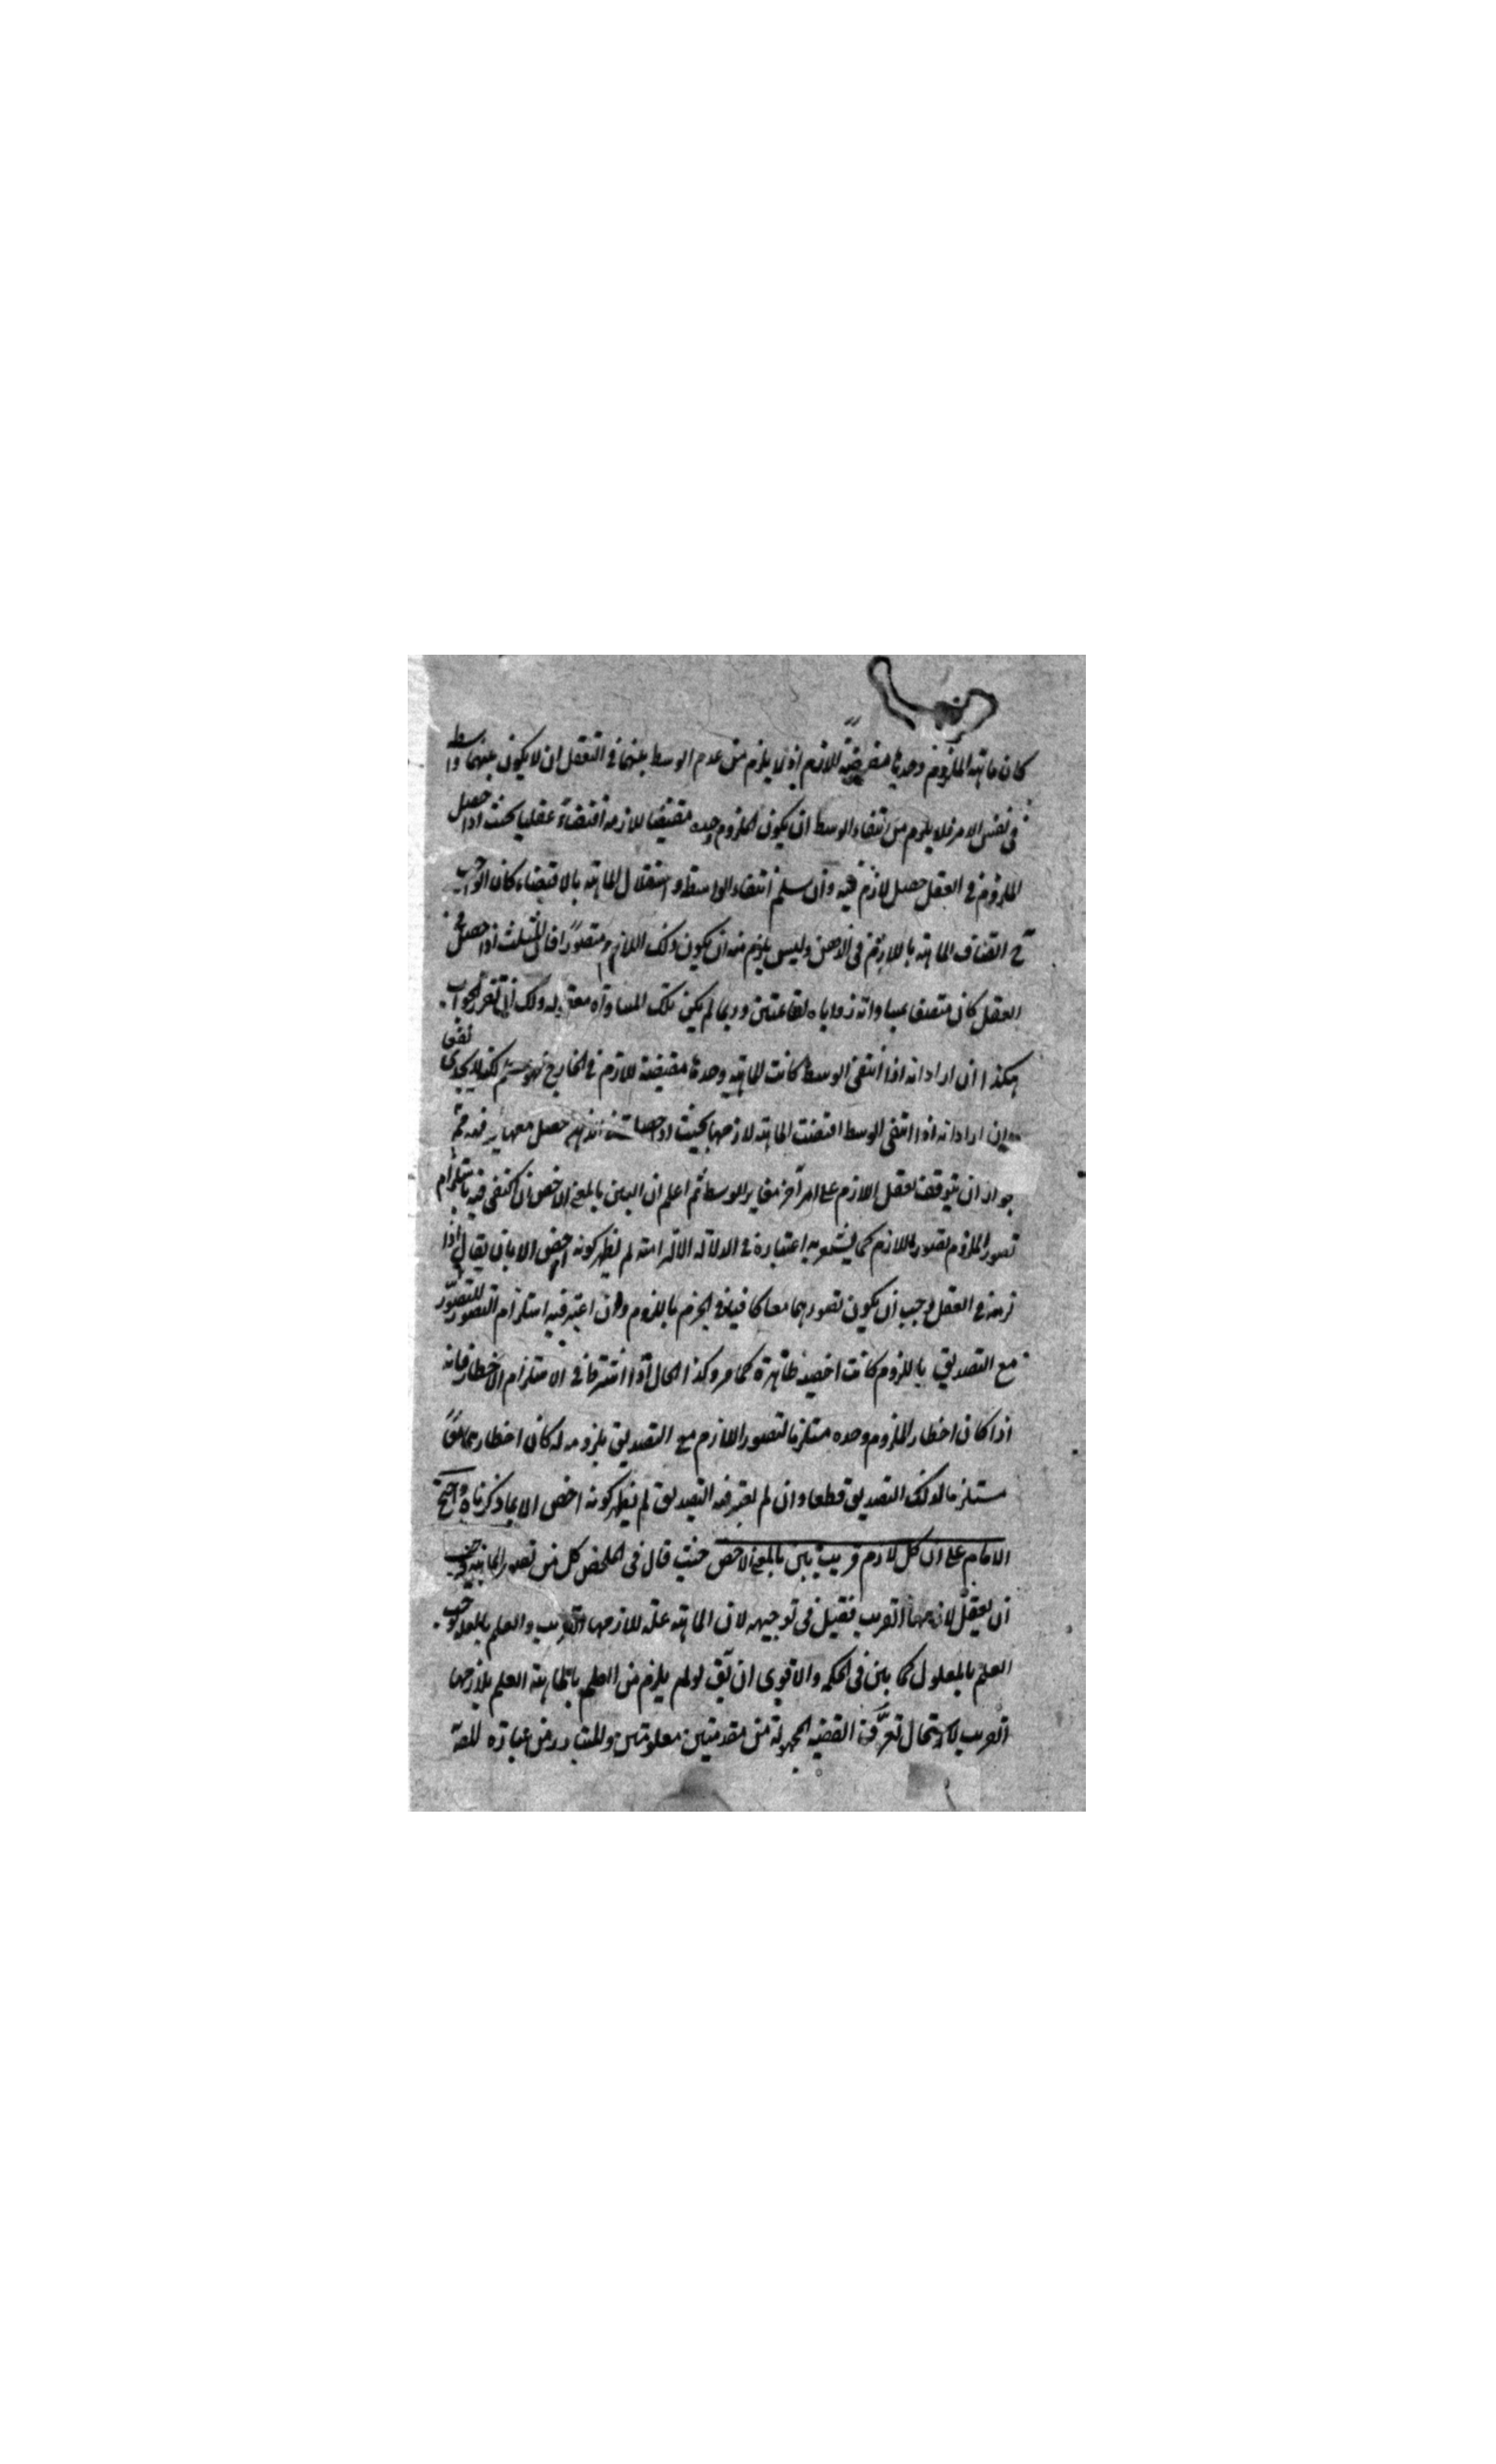 كان ماهية الملزوم وحدها مقتضية للازم اذ لا يلزم من عدم الوسط بينهما في التعقل ان لا يكون بينهما واسطة
في نفس الامر فلا يلزم من انتفاء الوسط ان يكون الملزوم وحده مقتضيا للازمه اقتضاء عقليا بحيث اذا حصل
الملزوم في العقل حصل لازمه فيه وان سلم انتفاء الواسطة و استقلال الماهية بالاقتضاء كان الواجب
ح اتصاف الماهية باللازم في الذهن وليس يلزم منه ان يكون ذلك اللازم متصورا فان المثلث اذا حصل في
العقل كان متصفا بمساواة زواياه لقائمتين وربما لم يكن تلك المساواة معقولة ولك ان تقرر الجواب
هكذا ان اراد انه اذا انتفى الوسط كانت الماهية وحدها مقتضية للازم في الخارج فهو مسلم لكنه لا يجدى نفعا
وان اراد انه اذا انتفى الوسط اقتضت الماهية لازمها بحيث اذا حصلت في الذهن حصل معها فيه فهو مم
جواز ان يتوقف تعقل اللازم على امر آخر مغاير الوسط ثم اعلم ان البين بالمعنى الاخص ان اكتفى فيه باستلزام
تصور الملزوم لتصور اللازم كما يشعر به اعتباره في الدلالة الالتزامية لم يظهر كونه اخص الا بان يقال اذا
لزمه في العقل وجب ان يكون تصورهما معا كافيا في الجزم باللزوم وان اعتبر فيه استلزام التصور للتصور
مع التصديق باللزوم كانت اخصيته ظاهرة كما مر وكذا الحال اذا اشترط في الاستلزام الاخطار فانه
اذا كان اخطار الملزوم وحده مستلزما لتصور اللازم مع التصديق بلزومه له كان اخطارهما معا
مستلزما لذلك التصديق قطعا وان لم يعتبر فيه التصديق لم يظهر كونه اخص الا بما ذكرناه واحتج
الامام على ان كل لازم قريب بين بالمعنى الاخص حيث قال في الملخص كل من تصور الماهية وجب
ان يعقل لازمها القريب فقيل في توجيهه لان الماهية علة للازمها القريب والعلم بالعلة يوجب
العلم بالمعلول كما بين في الحكمة والاقوى ان يق لو لم يلزم من العلم بالماهية العلم بلازمها
القريب لاستحال تعرف القضية المجهولة من مقدمتين معلومتين والمتبادر من عبارة